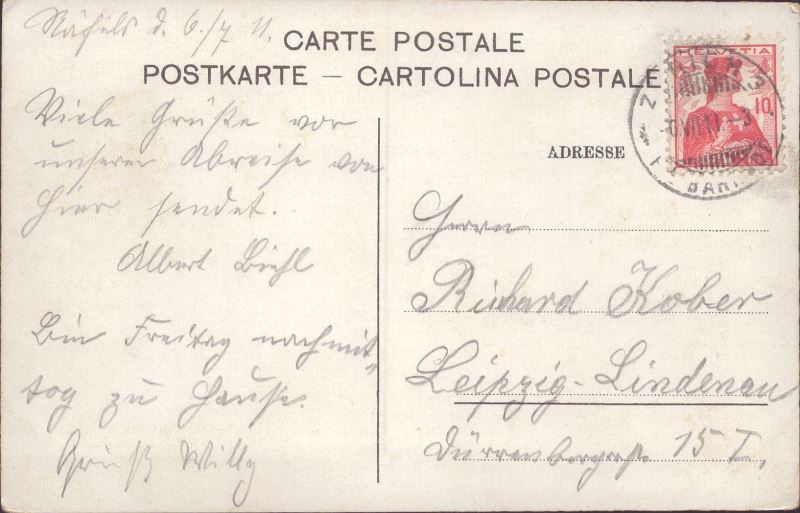 Näfels d. 6/7 11.
CARTE POSTALE
POSTKARTE – CARTOLINA POSTALE
Viele Grüße vor
unserer Abreise von
hier sendet.
Albert Biehl
Bin Freitag nachmit-
tag zu Hause.
Gruß Willy
HELVETIA
10
ADRESSE
Herrn
Richard Kober
Leipzig-Lindenau
Dürrenbergerstr. 15 I.